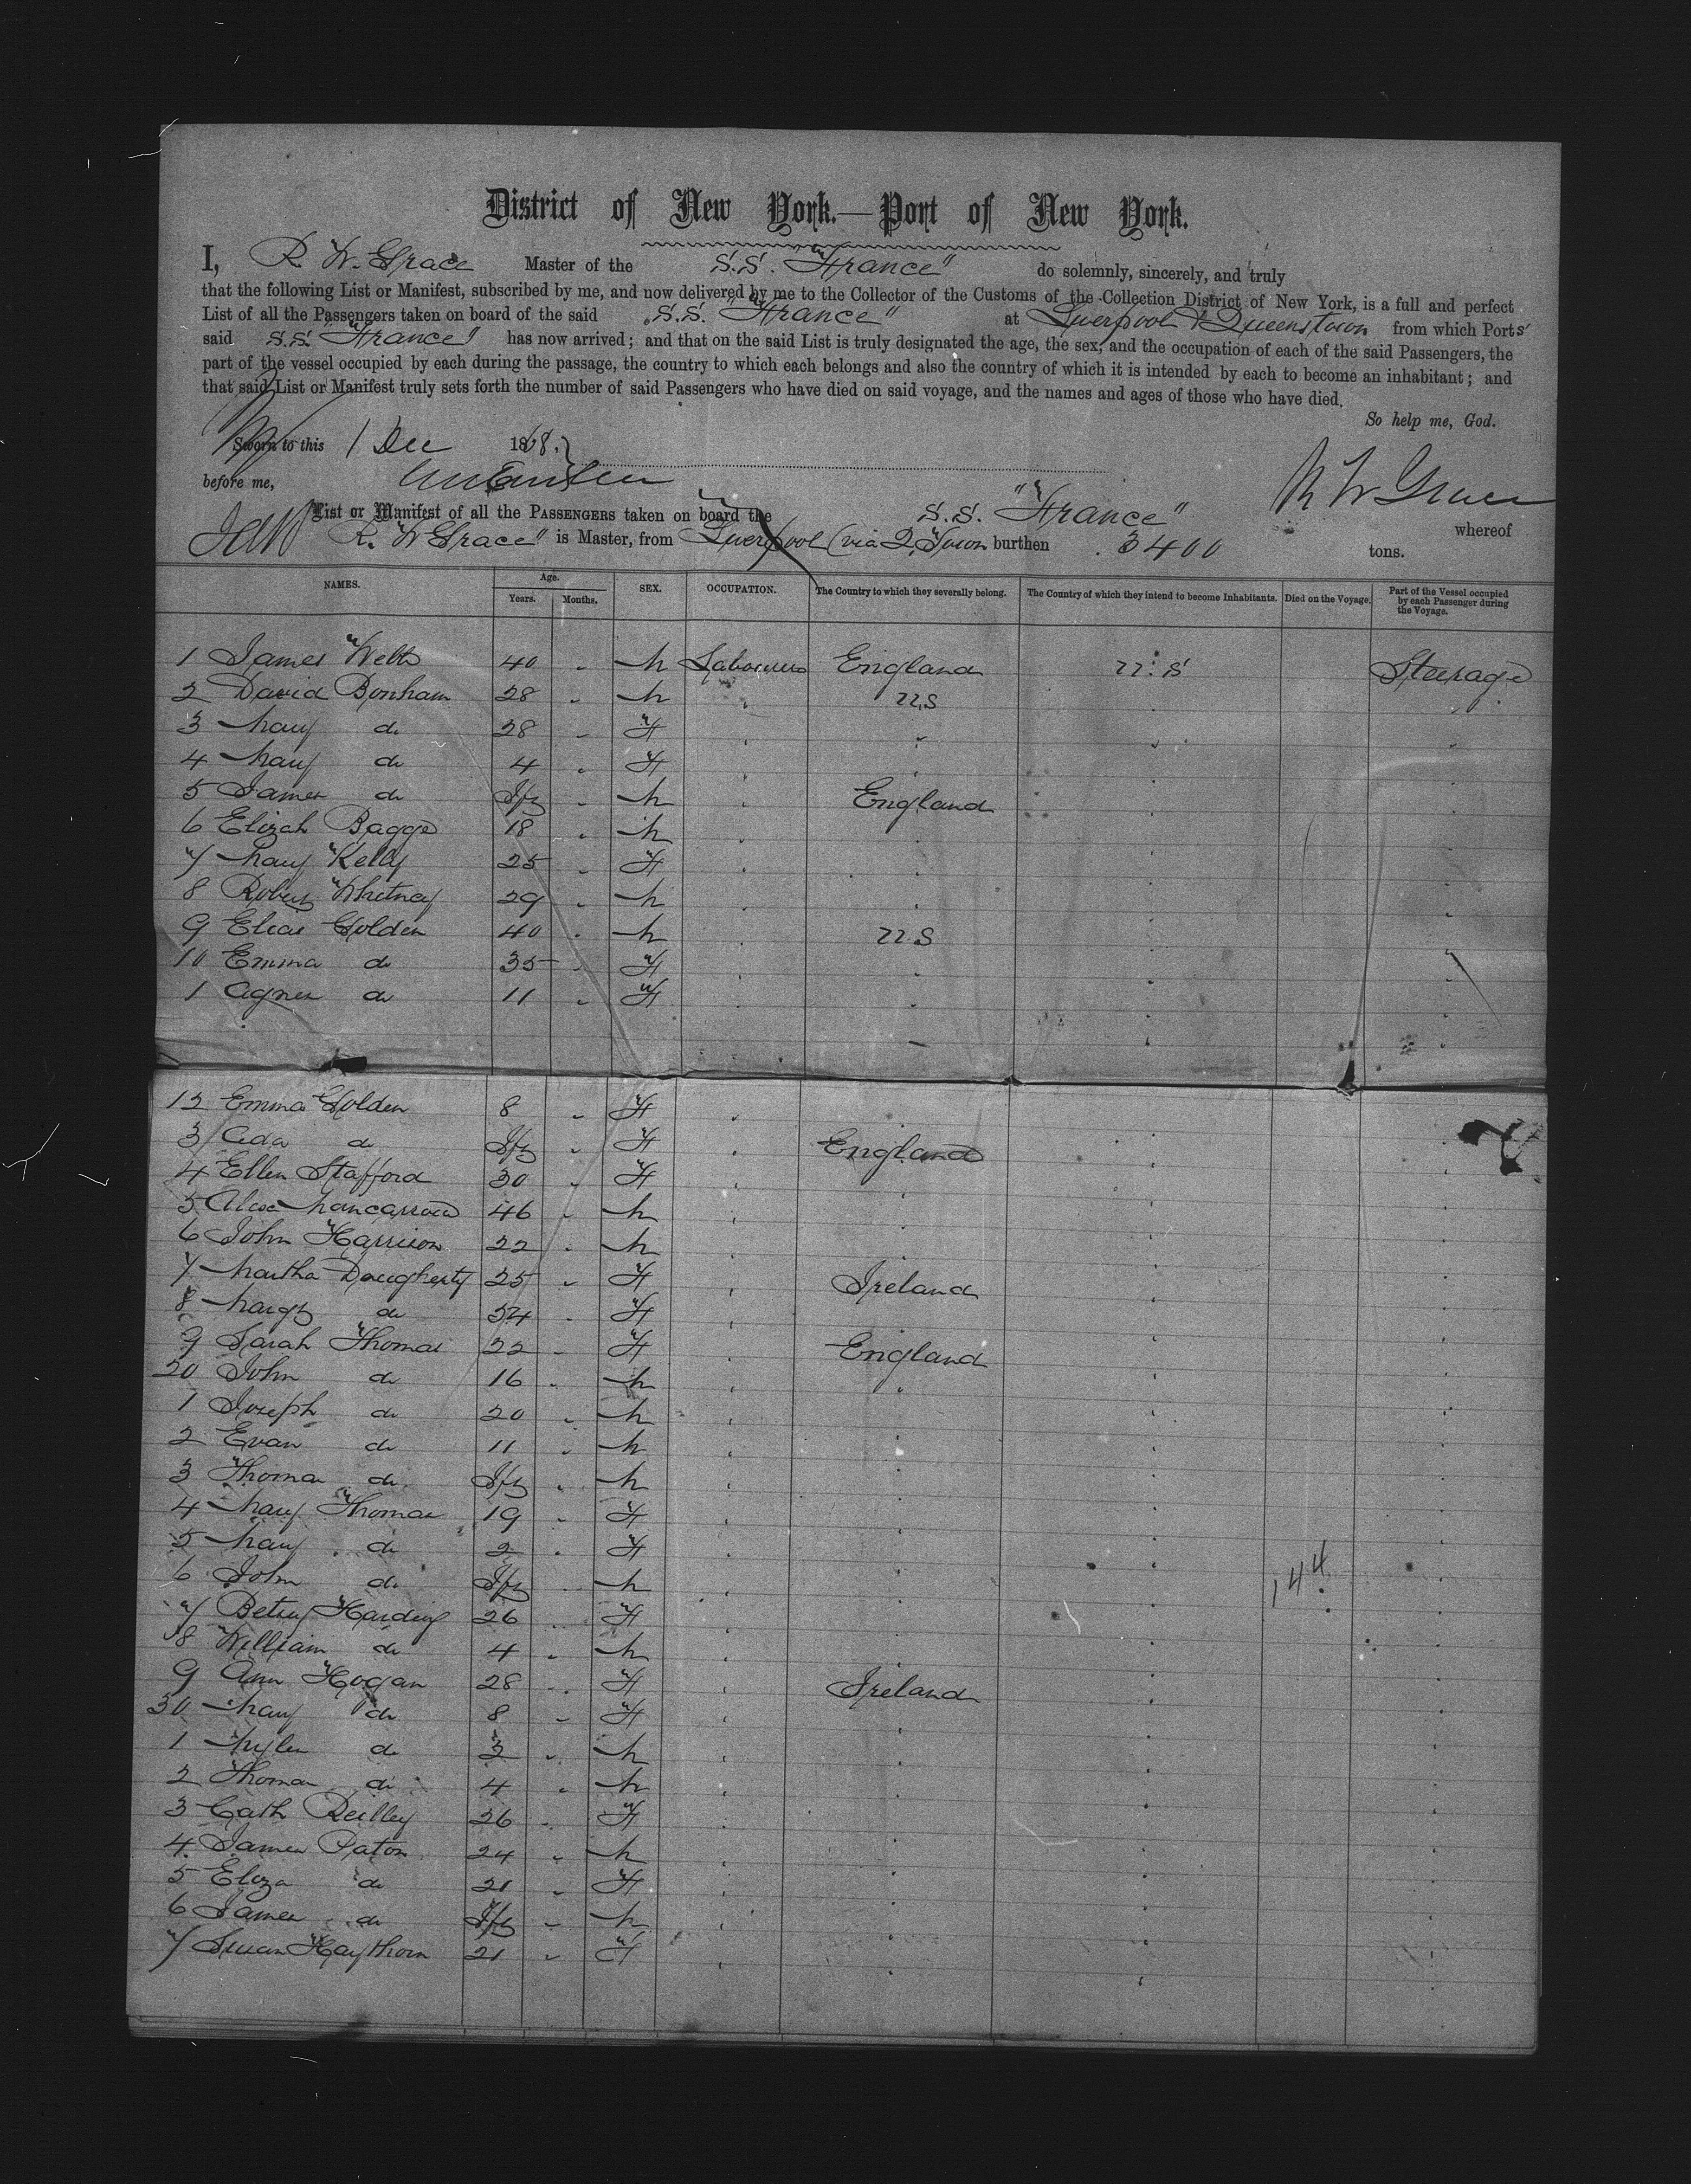 District of New York.—Port of New York.
I, R. W. Grace Master of the S.S. "France" do solemnly, sincerely, and truly
that the following List or Manifest, subscribed by me, and now delivered by me to the Collector of the Customs of the Collection District of New York, is a full and perfect
List of all the Passengers taken on board of the said S.S. "France" at Liverpool & Queenstown from which Ports
said S.S. "France" has now arrived; and that on the said List is truly designated the age, the sex, and the occupation of each of the said Passengers, the
part of the vessel occupied by each during the passage, the country to which each belongs and also the country of which it is intended by each to become an inhabitant; and
that said List or Manifest truly sets forth the number of said Passengers who have died on said voyage, and the names and ages of those who have died.
So help me, God.
Sworn to this 1 Dec 1868.
before me,
R W Grace
List or Manifest of all the PASSENGERS taken on board the S.S. "France" whereof
R. W Grace" is Master, from Liverpool (via Q. Town burthen 3400 tons.
NAMES. Age. SEX. OCCUPATION. The Country to which they severally belong. The Country of which they intend to become Inhabitants. Died on the Voyage. Part of the Vessel occupied by each Passenger during the Voyage.
Years. Months.
1 James Webb 40 " M Labourers England U.S Steerage
2 David Bonham 28 " M " U.S " "
3 Mary do 28 " F " " " "
4 Mary do 4 " F " " " "
5 James do Inft " M " England " "
6 Elizah Baggs 18 " M " " " "
7 Mary Kelly 25 " F " " " "
8 Robert Whitney 29 " M " " " "
9 Elias Golden 40 " M " U.S " "
10 Emma do 35 " F " " " "
1 Agnes do 11 " F " " " "
12 Emma Golden 8 " F " " " "
3 Ada do Inft " F " England " "
4 Ellen Stafford 30 " F " " " "
5 Alex 46 " M " " " "
6 John Harrison 22 " M " " " "
7 Martha Daugherty 25 " F " Ireland " "
8 Margt do 54 " F " " " "
9 Sarah Thomas 22 " F " England " "
20 John do 16 " M " " " "
1 Joseph do 20 " M " " " "
2 Evan do 11 " M " " " "
3 Thomas do Inft " M " " " "
4 Mary Thomas 19 " F " " " "
5 Mary do 2 " F " " " "
6 John do Inft " M " " " 144 "
7 Betsy Harding 26 " F " " " "
28 William do 4 " M " " " "
9 Ann Hogan 28 " F " Ireland " "
30 Mary do 8 " F " " " "
1 Myles do 3 " M " " " "
2 Thomas do 4 " M " " " "
3 Cath Reilley 26 " F " " " "
4 James Paton 24 " M " " " "
5 Eliza do 21 " F " " " "
6 James do Inft " M " " " "
7 Susan Haythorn 21 " F " " " "